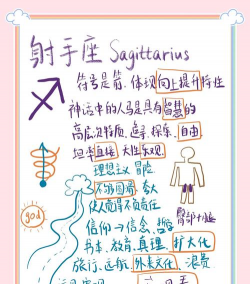 射手座 Sagittarius
符号是箭，体现向上提升特性
神话中的人马是具有智慧的
高层次特质，追寻，探索，自由
坦率直接，天性乐观
理想主义 冒险
不够圆滑，夸大
使人觉得不负责任
god
臀部
信仰→信念，哲学
书本、教育、真理，扩大化
旅行、远航，外来文化、浪费